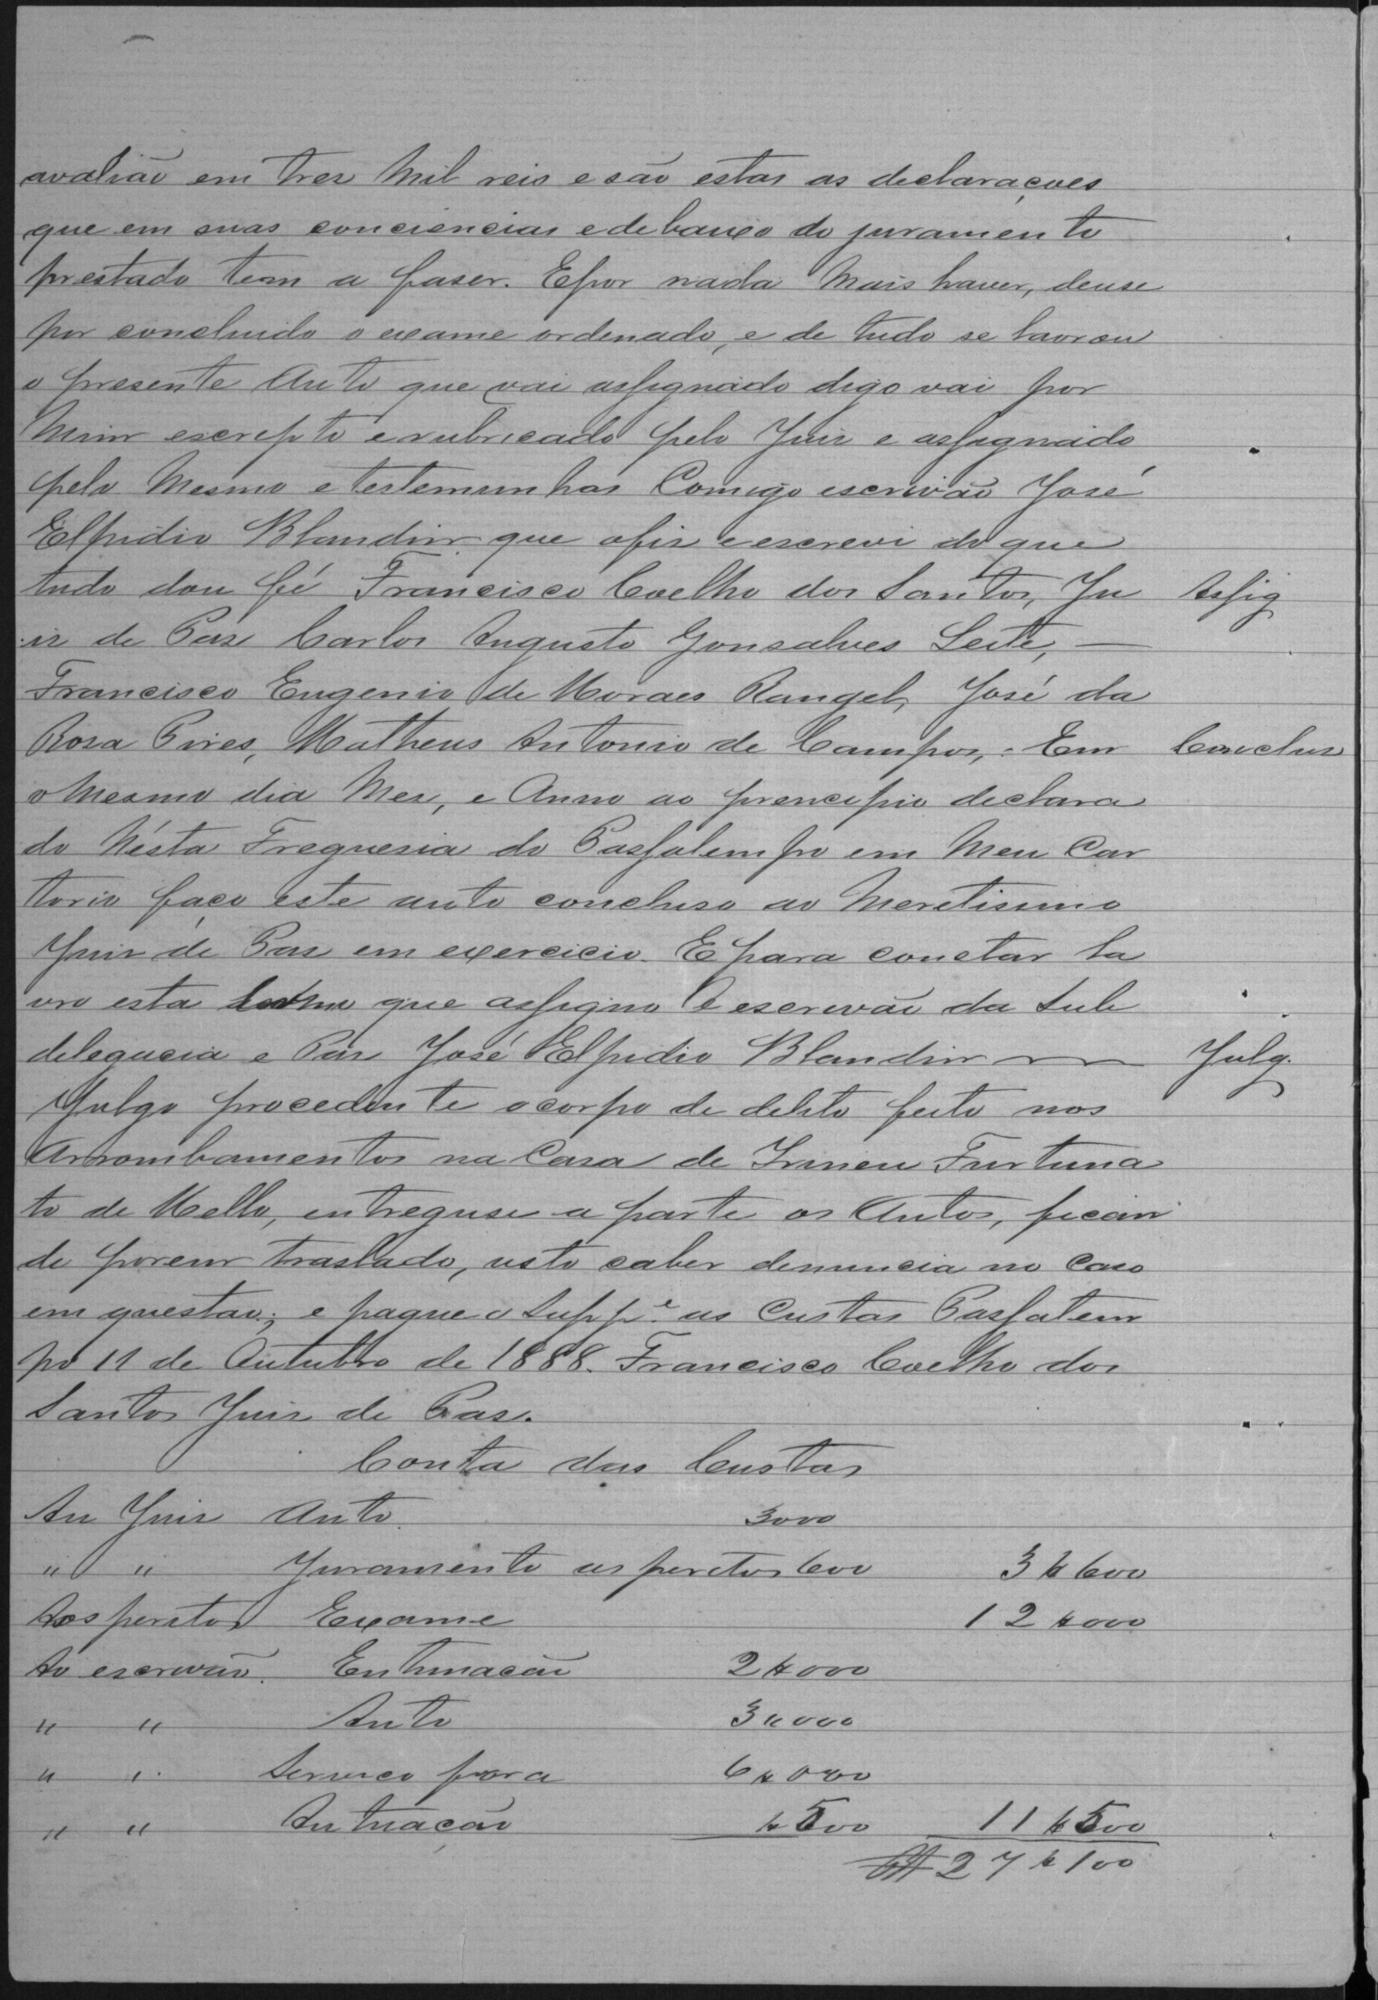 avalião em tres Mil reis e são estas as declaraçoes
que em suas conciencias e debaixo do juramento
prestado tem a faser. E por nada Mais haver, deuse
por concluido o exame ordenado, e de tudo se lavrou
o presente Auto que vai assignado digo vai por
Mim escripto e rubricado pelo Juiz e assignado
pelo Mesmo e testemunhas Comigo escrivão José
Elpidio Blandin que o fiz e escrevi do que
tudo dou fé Francisco Coelho dos Santos, Ju Assig
iz de Paz Carlos Augusto Gonsalves Leite, —
Francisco Eugenio de Moraes Rangel, José da
Rosa Pires, Matheus Antonio de Campos,. Em Concluz
o Mesmo dia Mez, e Anno ao prencipio declara
do Nésta Freguesia do Passatempo em Meu Car
torio faço este auto concluso ao Meretissimo
Juiz de Paz em exercicio. E para conctar la
vro esta que assigno O escrivão da Sub
delegacia e Paz José Elpidio Blandin Julg.
Julgo procedente o corpo de delito feito nos
Arrombamentos na Casa de Irineu Furtuna
to de Mello, entreguese a parte os Autos, fican
do porem traslado, visto caber denuncia no Caso
em questao; e pague o Supp.e as Custas Passatem
po 11 de Outubro de 1888. Francisco Coelho dos
Santos Juiz de Paz.
Conta das Custas
Au Juiz Auto. 3000
" " Juramento as peritos 600 3$600
Aos peritos Exame 12$000
Ao escrivão. Entimação 2$000
" " Auto 3$000
" " Serviço fora 6$000
" " Autuação $500 11$500
27$100